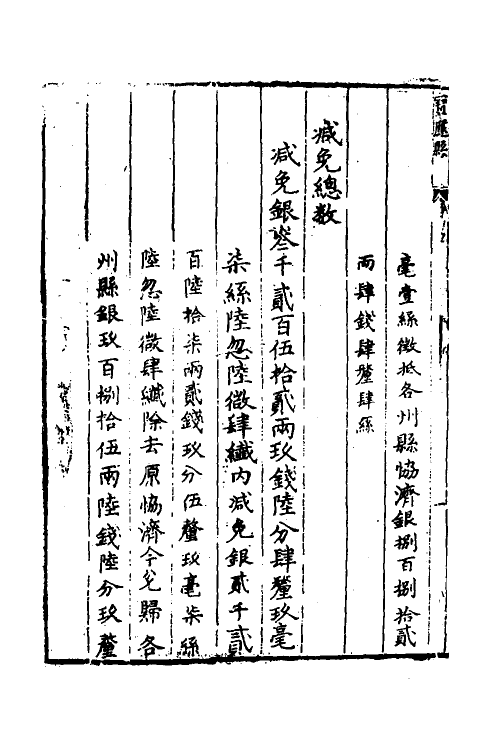 寶應縣
毫壹絲徵抵各州縣恊濟銀捌百捌拾貳
兩肆錢肆釐肆絲
減免總数
減免銀叁千貳百伍拾貳兩玖錢陸分肆釐玖毫
柒絲陸忽陸微肆纖内減免銀貳千貳
百陸拾柒兩貳錢玖分伍釐玖毫柒絲
陸忽陸微肆纖除去原恊濟今兑歸各
州縣銀玖百捌拾伍兩陸錢陸分玖釐